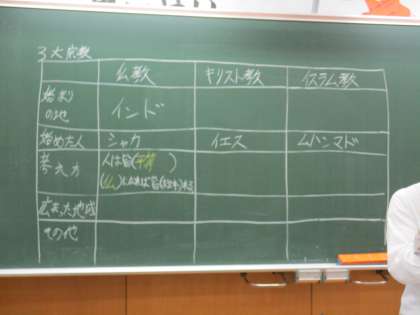 3大宗教
仏教 キリスト教 イスラム教
始まりの地 インド
始めた人 シャカ イエス ムハンマド
考え方 人は皆(平等)
(仏)になれば皆
広まった地域
その他